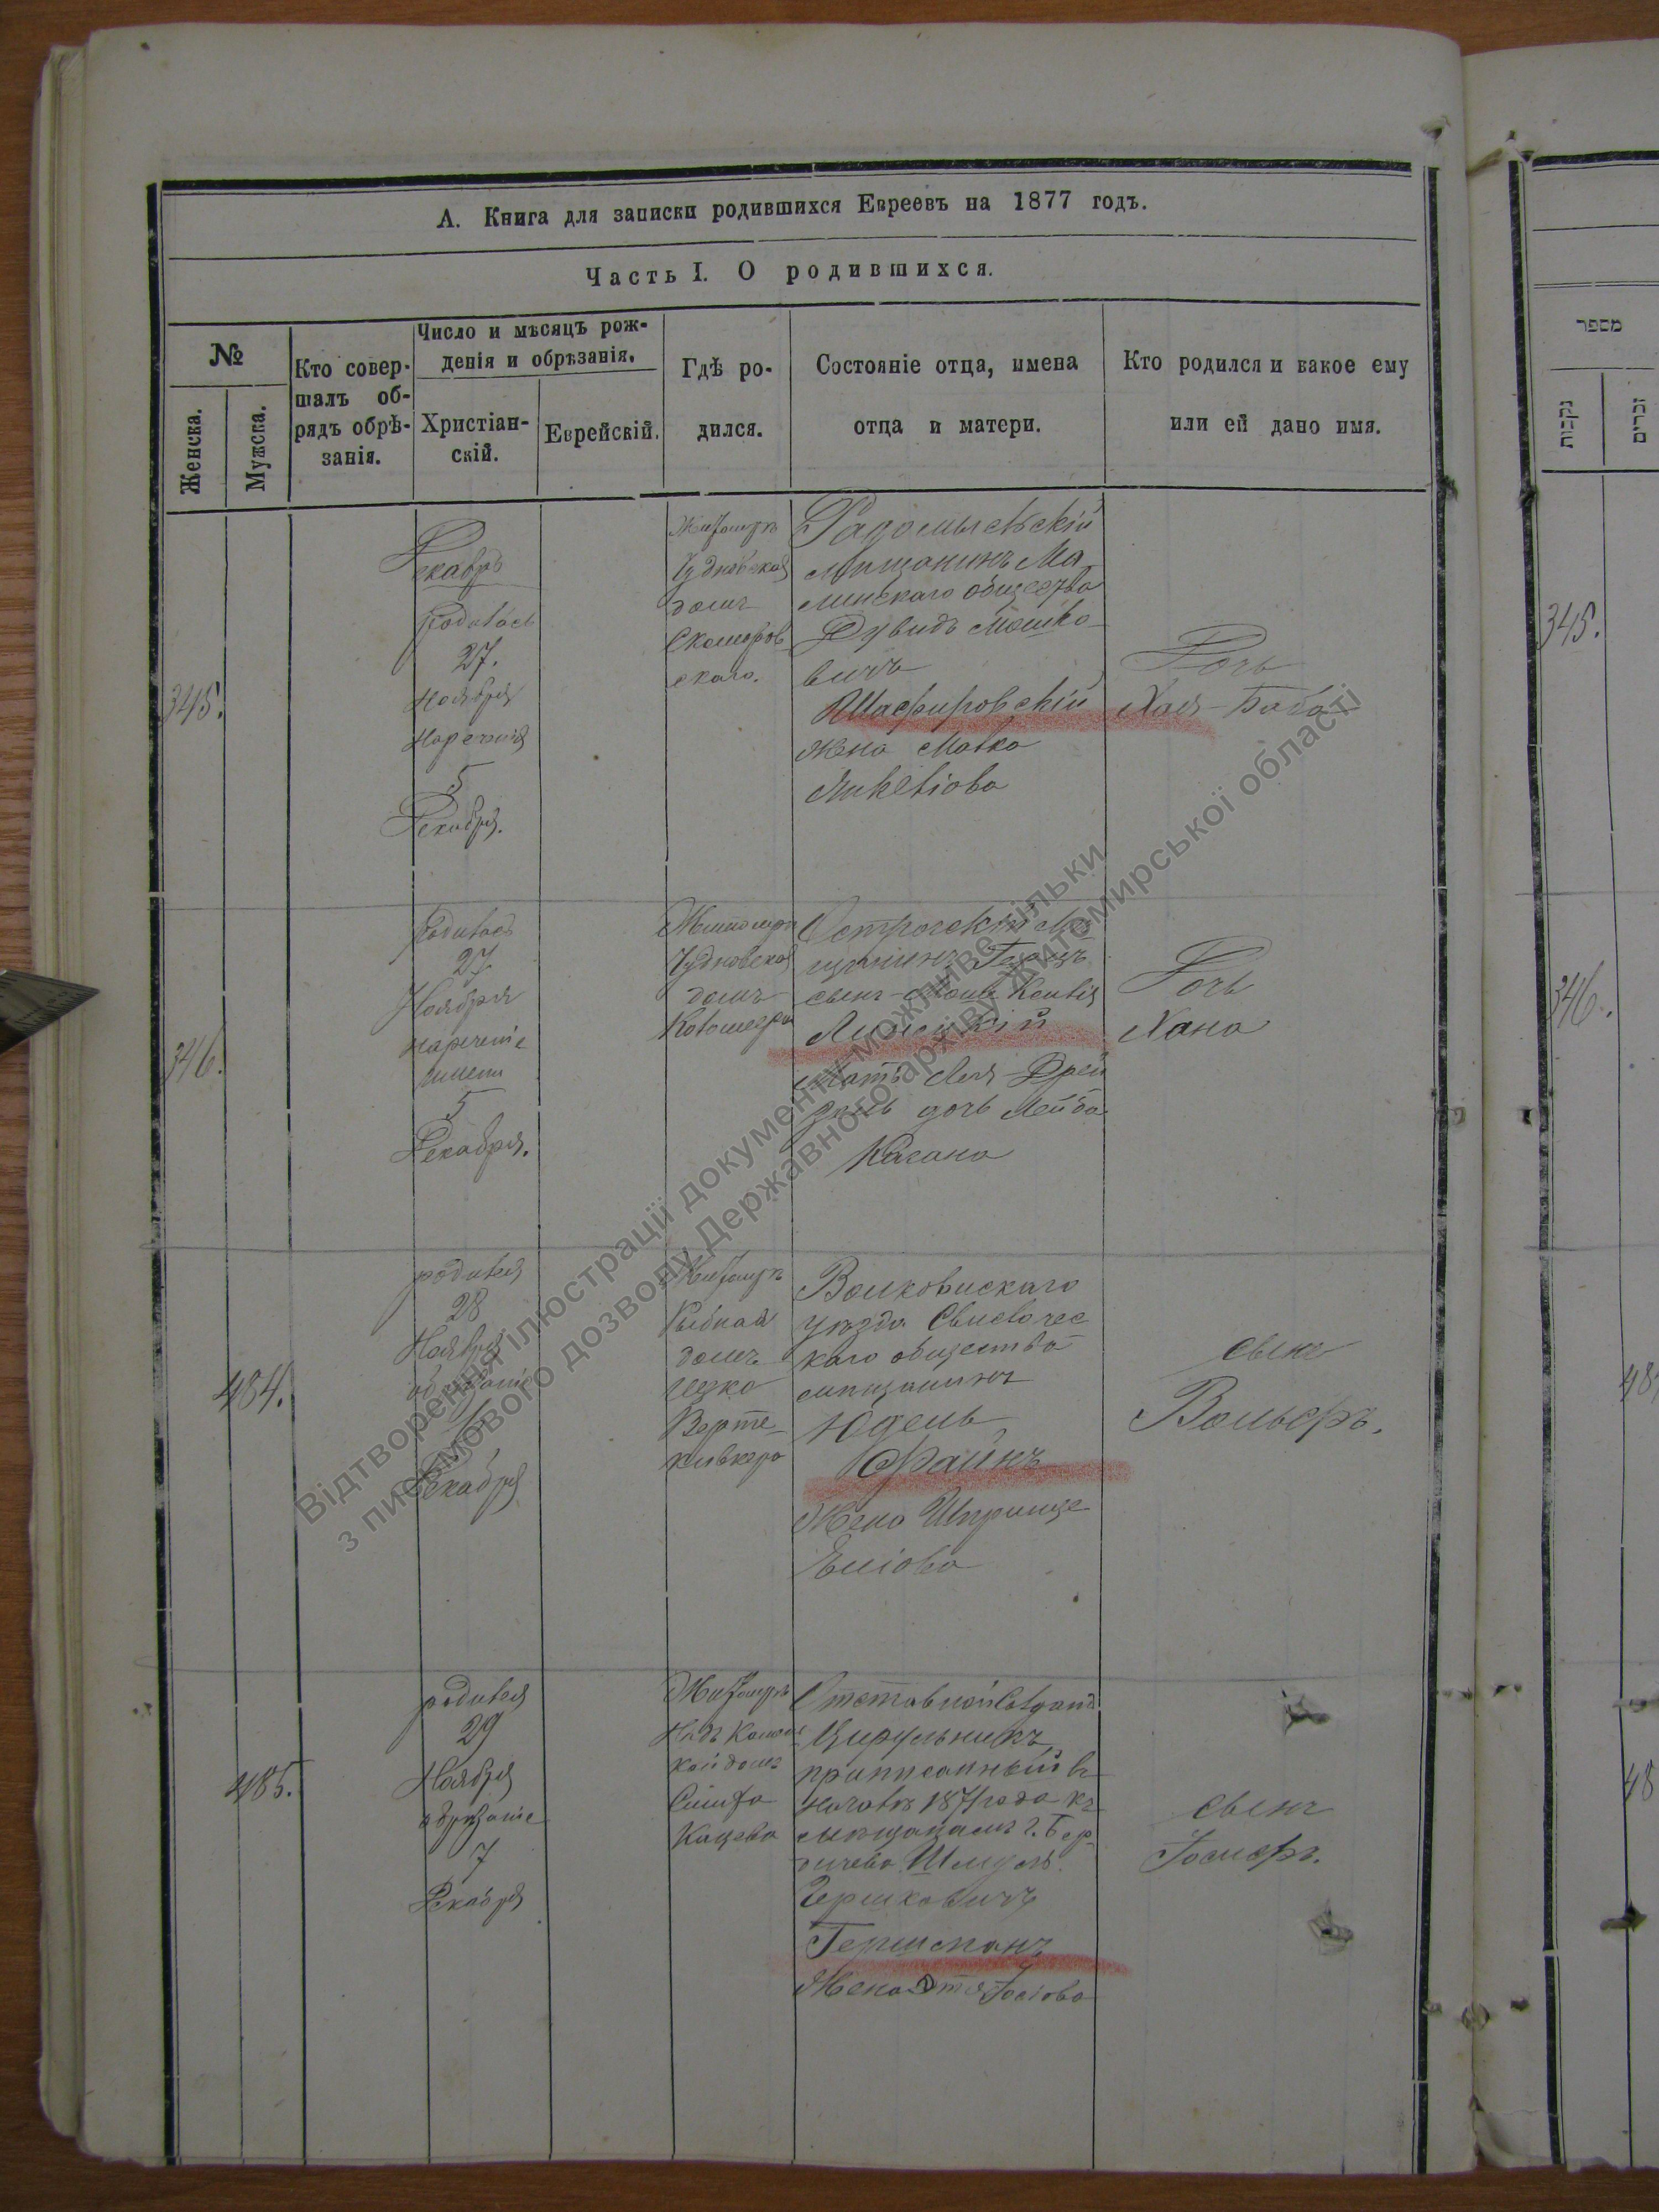 А. Книга для записки родившихся Евреевъ на 1877 годъ.
Часть I. О родившихся.
№
Женска.
Мужска.
Кто совер-
шалъ об-
рядъ обрѣ-
занія.
Число и мѣсяцъ рож-
денія и обрѣзанія.
Христіан-
скій.
Еврейскій.
Гдѣ ро-
дился.
Состояніе отца, имена
отца и матери.
Кто родился и какое ему
или ей дано имя.
345.
Декабрь
родилась
27.
Ноября
Наречения
5
Декабря.
Житомиръ
Чудновская
домъ
Скоморов-
скаго.
Радомысльскій
мѣщанинъ Ма
линскаго общества
Дувидъ Мошко-
вичъ
Шафировскій
жена Малка
Янкеліова
Дочь
Хая-Баба
346.
родилась
27
Ноября
наречение
имени
5
Декабря.
Житомиръ
Чудновская
домъ
Острогскій мѣ
щанинъ
сынъ
мать Лея-Фрей
дель дочь Лейба
Кагана
Дочь
Хана
484.
родился
28
Ноября
обрезаніе
Декабря
Житомиръ
Рыбная
домъ
Ицко
Волковискаго
уѣзда Свислочес
каго общества
мѣщанинъ
Юдель
Файнъ
Жена Шпринце
сынъ
Вольфъ.
485.
родился
29
Ноября
обрѣзаніе
7
Декабря
Житомиръ
Надъ Камен
кой домъ
Кацева
Отставной солдатъ
Цирульникъ,
приписанный въ
началѣ 1871 года къ
мѣщанамъ г. Бер-
дичева
Гершковичъ
Гершманъ
Жена Этя
сынъ
Іосифъ.
מספר
נקבות
זכרים
345.
346.
48
48
Відтворення ілюстрації документу можливе тільки
з письмового дозволу Державного архіву Житомирської області